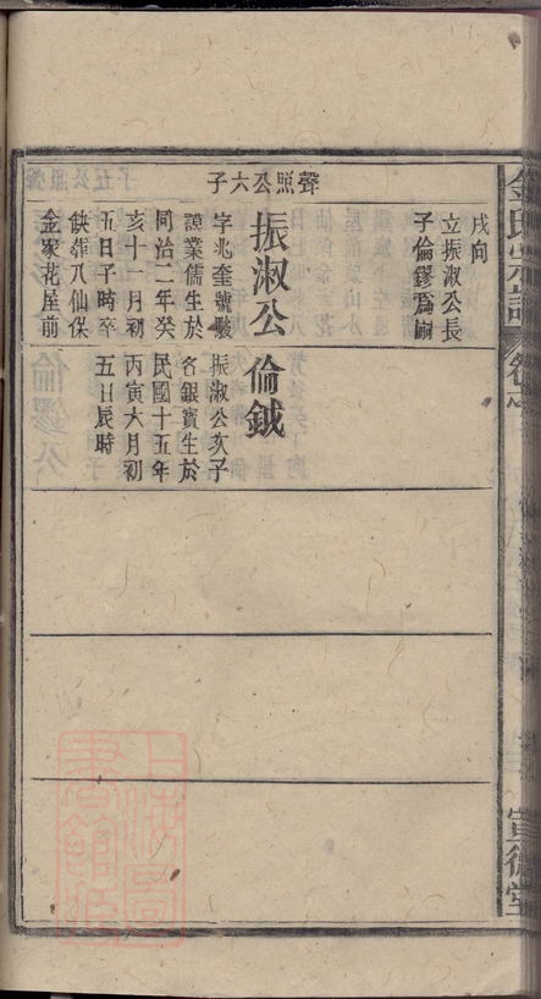 金氏宗譜
宣德堂
戌向
立振淑公長
子倫鏐爲嗣
聲照公六子
振淑公
字兆奎號駿
謨業儒生於
同治二年癸
亥十一月初
五日子時卒
缺葬八仙保
金家花屋前
倫鉞
振淑公次子
名銀寶生於
民國十五年
丙寅六月初
五日辰時
上海圖
書館藏